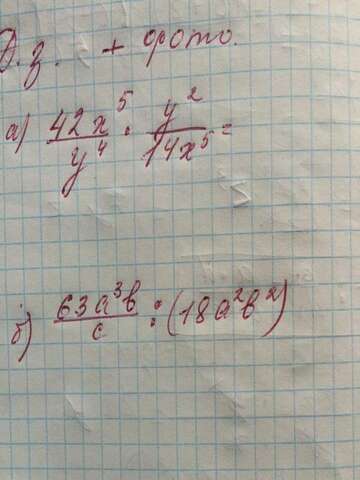 Д.з. + фото.
а) \frac{42x^5}{y^4} \cdot \frac{y^2}{14x^5} =
б) \frac{63a^3b}{c} : (18a^2b^2)